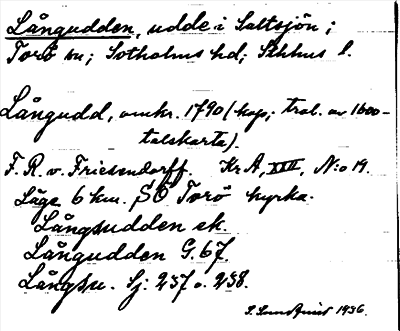 Långudden, udde i Saltsjön;
Torö sn; Sotholms hd; Sthlms l.
Långudd, omkr. 1790 (kop; trol. av 1600-
talskarta).
F. R. v. Friesendorff. Kr A, XIII, N:o 19.
Läge 6 km. SO Torö kyrka.
Långsudden ek.
Långudden G. 67.
Långsu. Sj: 237 o. 238.
S. Lundquist 1936.